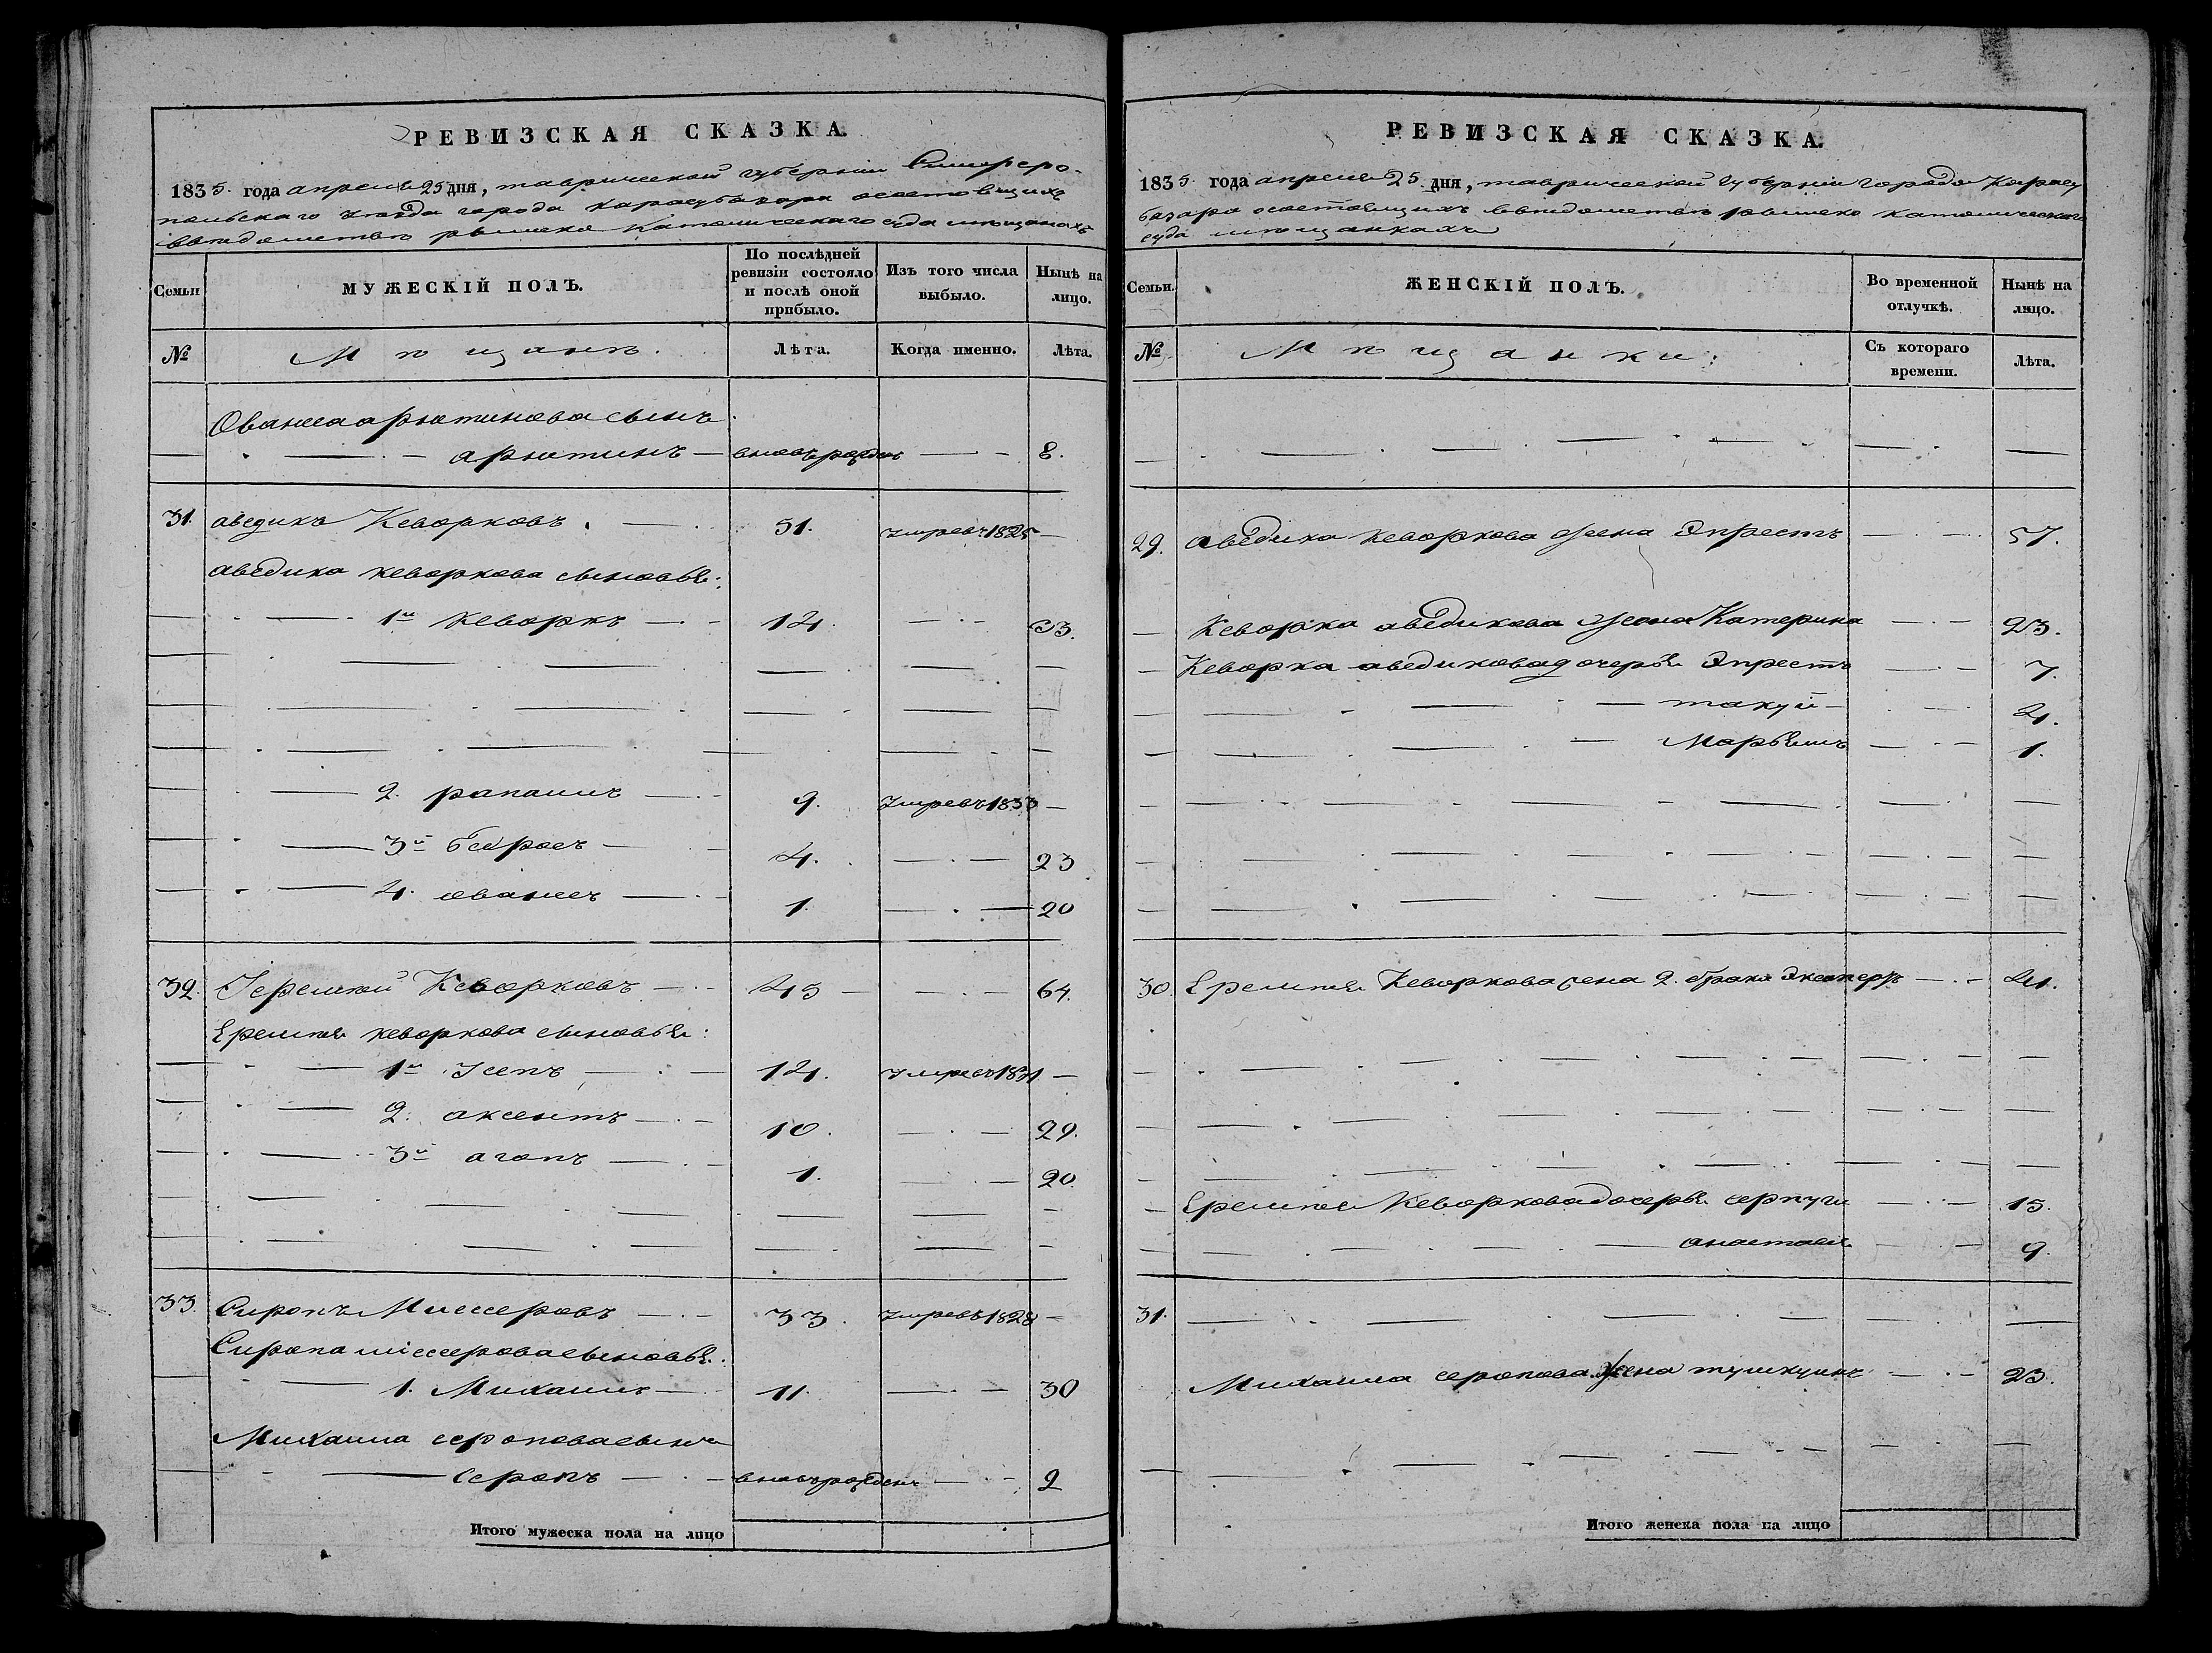 РЕВИЗСКАЯ СКАЗКА.
1835. года апреля 25 дня, таврической губернии Симферо-
польскаго уезда города карасубазара состоящихъ
ввѣдомствѣ римско Католическаго суда мѣщанахъ
Семьи
МУЖЕСКІЙ ПОЛЪ.
По послѣдней ревизіи состояло и послѣ оной прибыло.
Изъ того числа выбыло.
Нынѣ на лицо.
№
Мѣщане.
Лѣта.
Когда именно.
Лѣта.
Ованеса арютинова сынъ
арютинъ вновь рожденъ 8.
31. аведикъ Кеворковъ. 51. умревъ 1825
аведика кеворкова сыновья:
1й Кеворкъ 14. 33.
2. рапаилъ 9. умревъ 1833
3й 4. 23
4. ованесъ 1. 20
32. Іеремѣй Кеворковъ 45 64.
Еремѣя кеворкова сыновья:
1й Усепъ 14. умревъ 1831
2. аксентъ 10. 29.
3й агопъ 1. 20.
33. Сиропъ Миссеровъ 33. умревъ 1828
Сиропа міссерова сыновья:
1. Михаилъ 11. 30
Михаила серопова сынъ
серопъ вновь рожденъ 2
Итого мужеска пола на лицо
РЕВИЗСКАЯ СКАЗКА.
1835. года апреля 25. дня, таврической губерніи города Карасу
базара состоящихъ ввѣдомствѣ римско католическаго
суда мѣщанкахъ
Семьи.
ЖЕНСКІЙ ПОЛЪ.
Во временной отлучкѣ.
Нынѣ на лицо.
№
Мѣщанки:
Съ котораго времени.
Лѣта.
29. аведика кеворкова жена Эпрестъ 57.
Кеворка аведикова жена Катерина 23.
Кеворка аведикова дочерья Эпрестъ 7.
такуй 4.
Марьямъ 1.
30. Еремѣя Кеворкова жена 2. брака 41.
Еремѣя Кеворкова дочерья серпуги 15.
анастасія 9.
31.
Михаила серопова жена тушкуинъ 23.
Итого женска пола на лицо